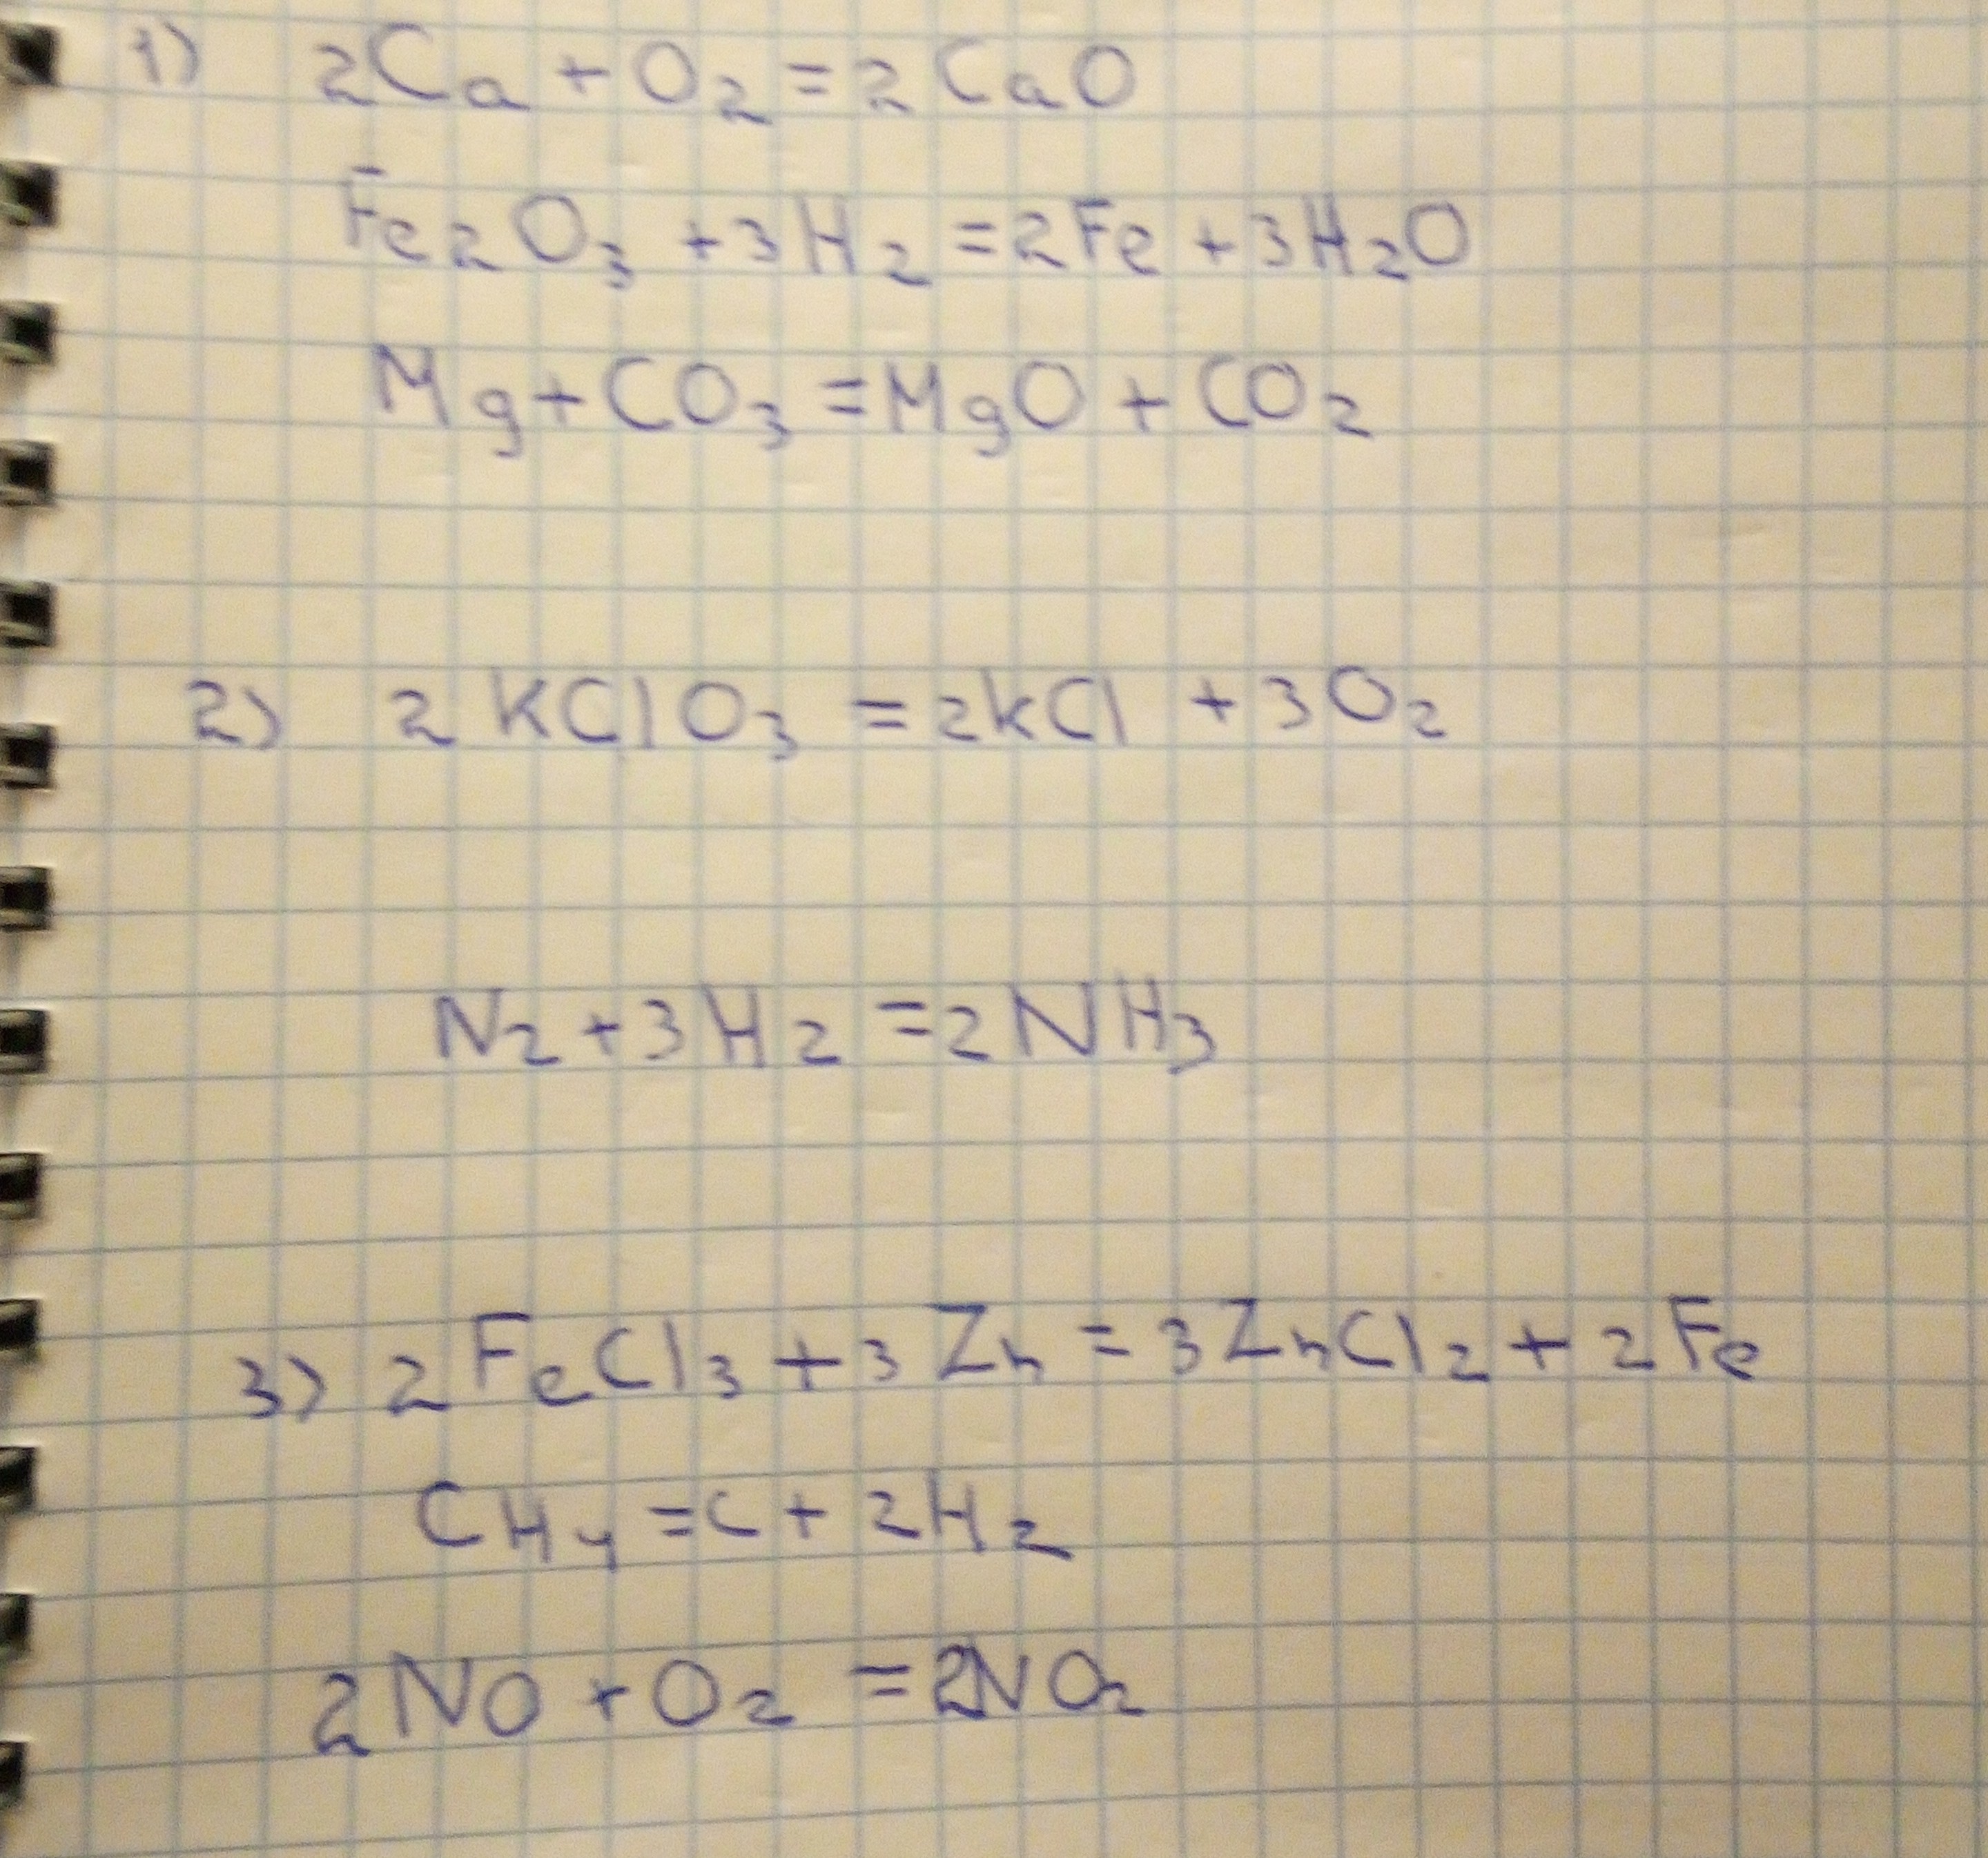 1) 2Ca + O₂ = 2CaO
Fe₂O₃ + 3H₂ = 2Fe + 3H₂O
Mg + CO₃ = MgO + CO₂
2) 2KClO₃ = 2KCl + 3O₂
N₂ + 3H₂ = 2NH₃
3) 2FeCl₃ + 3Zn = 3ZnCl₂ + 2Fe
CH₄ = C + 2H₂
2NO + O₂ = 2NO₂